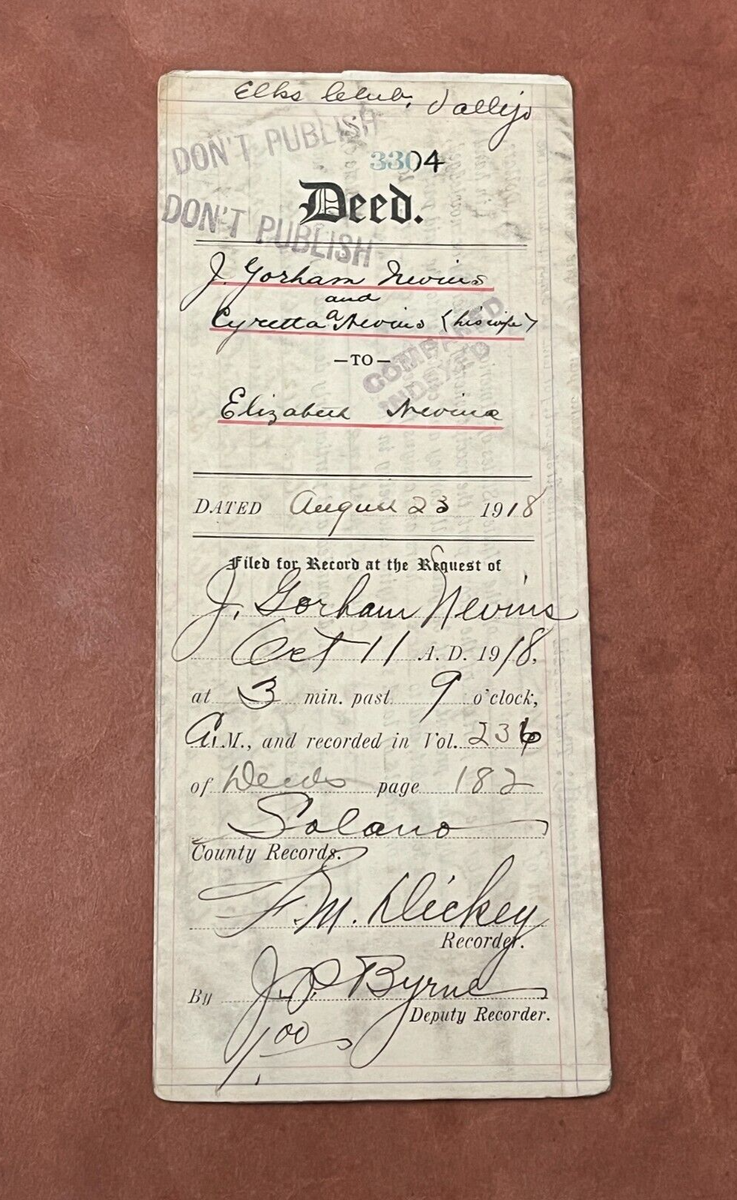 Elks Club, Vallejo
DON'T PUBLISH
3304
DON'T PUBLISH
Deed.
J. Gorham Nevins
and
Cyretta a Nevins (his wife)
COMPARED
INDEXED
—TO—
Elizabeth Nevins
DATED August 23 1918
Filed for Record at the Request of
J. Gorham Nevins
Oct 11 A. D. 1918,
at 3 min. past 9 o'clock,
A.M., and recorded in Vol. 236
of Deeds page 182
Solano
County Records.
F. M. Dickey
Recorder.
By J. P. Byrne
Deputy Recorder.
1.00